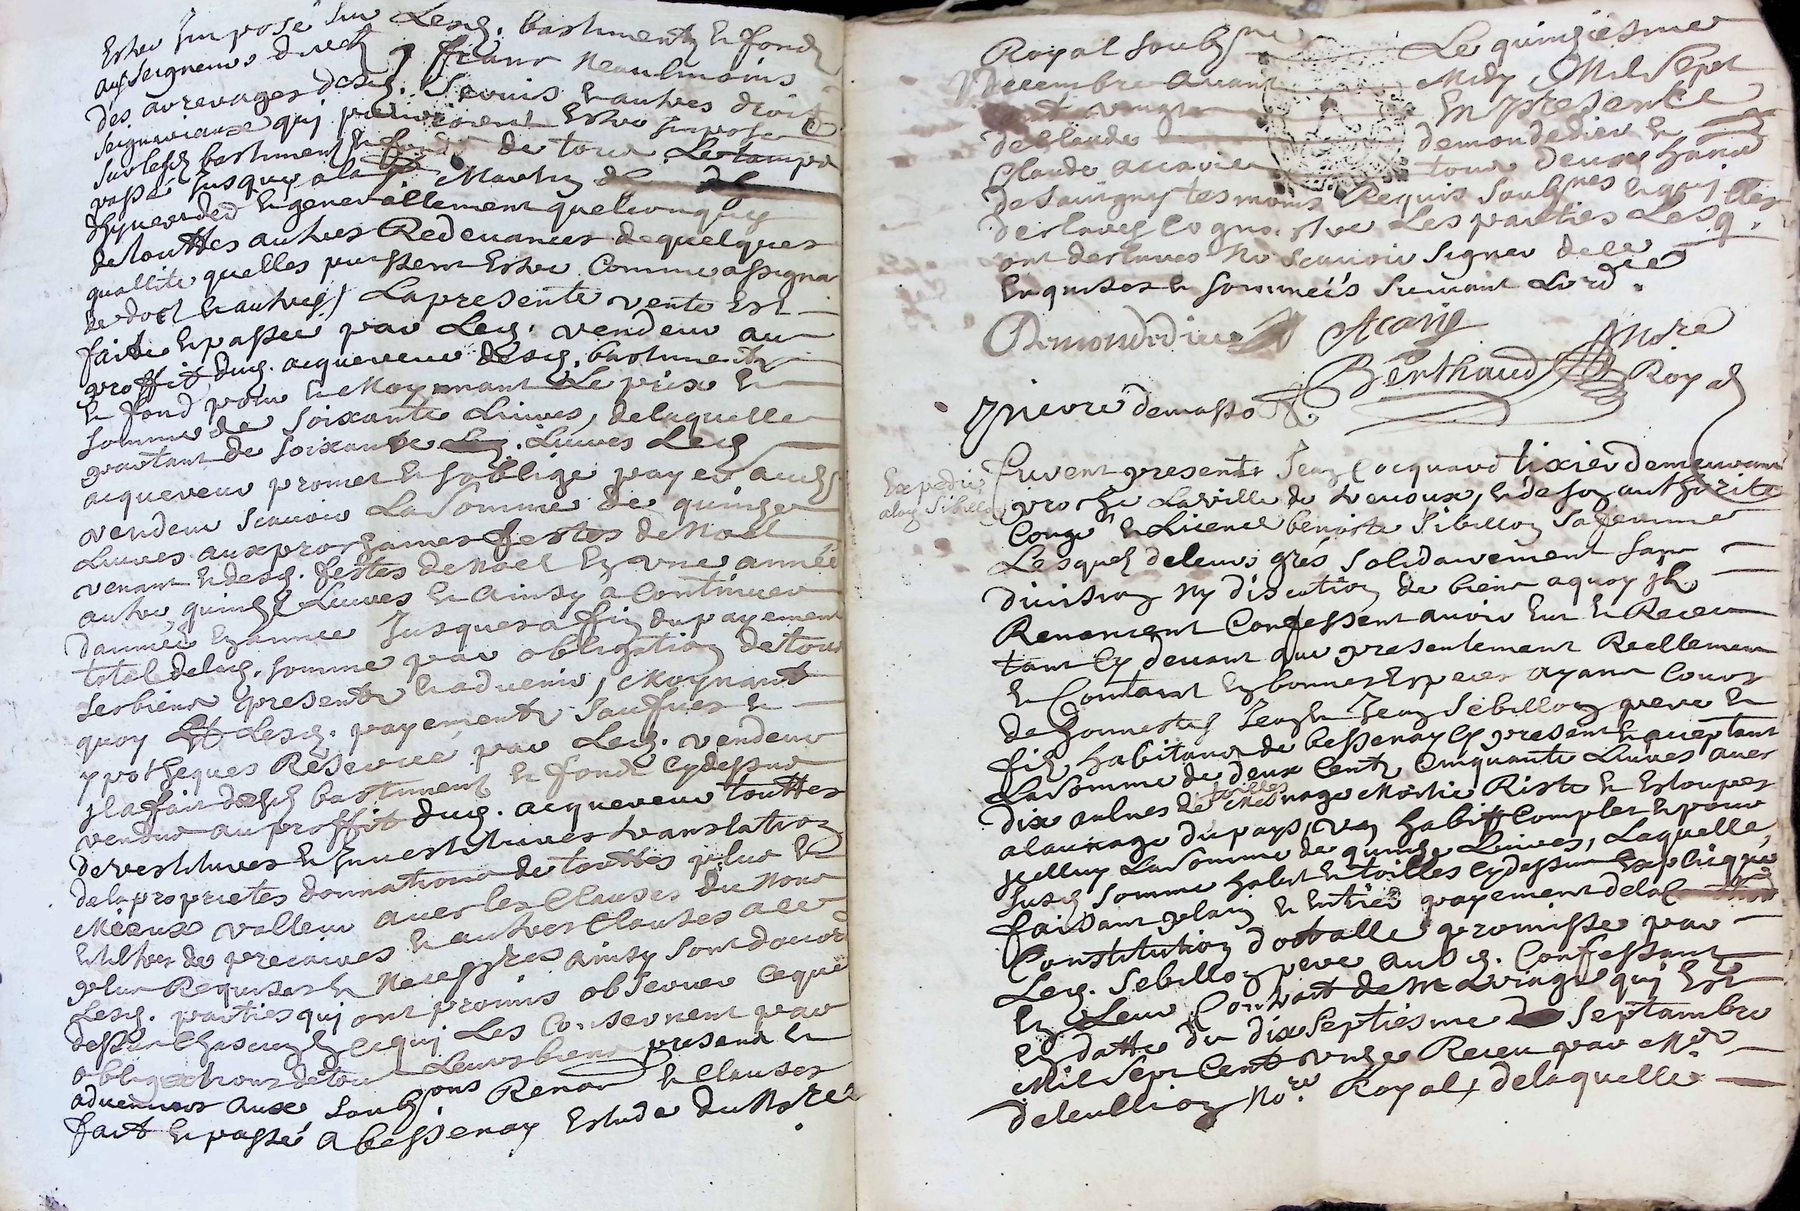 Estre Imposé sur Lesd. bastiment et fondz
aux seigneurs directz franc neaulmoins
des arrerages desd. servis et autres droitz
seigneuriaux qui pourroient Estre Imposé
sur lesd bastiment et fondz de tout Le temps
passé Jusques a la St Martin
dhyver der et generallement quelconques
de touttes autres Redevances de quelques
quallité quelles puissent Estre Comme assigna
et autres, La presente vente Est
faitte et passée par Led. vendeur au
proffit dud. acquereur desd. bastiment
et fond pour et Moyennant Le prix et
somme de soixante Livres, de laquelle
partant de soixante Livres Led
acquereur promet et soblige payer aud
vendeur scavoir La somme de quinze
Livres aux prochaines festes de Noel
venant et desd. festes de Noel En une année
autre quinze Livres et ainsy a Continuer
dannée En année Jusques a fin du payement
total de lad. somme par obligation de tous
ses biens presents et advenir, Moynant
quoy et Lesd. payements sauf et
ypotheques Reservé par Led. vendeur
Il a fait desd bastiment et fondz Cydessus
vendus au proffit dud. acquereur touttes
devestitures et Investitures translation
de la proprietes donnations de touttes plus et
Mieux valleur avec les Clauses du Nom
et tiltres de precaires et autres Clauses a ce
plus Requises et Necessres ainsy sont daccord
Lesd. parties qui ont promis observer Ce que
dessus Chascung En Ce qui Les Consernent par
obligations de tous Leurs biens presens et
advenirs aux soubzons Renon et Clauses
fait et passé a bessenay Estude du Nore
Royal soubzsne Le quinziesme
Decembre avant Midy Mil Sept
Cent vingt En presence
de Claude demondedieu et
Claude accarie tous deux habit
de savigny tesmoins Requis soubznes et qui
declarez Cognoistre Les parties Lesq.
ont declarés No scavoir signer de ce
Enquises et sommées suivant Lord.
Demondedieu Acarie
Berthaud Nore Royal
Expedié
a lad Sibillon
Furent presents Jean Cocquard tixier demeurant
proche La ville de Lenoux, et de son authorité
Congé et Licence benoiste Sibillon sa femme
Lesquelz de leurs grés solidairement sans
division ny discution de biens a quoy Ilz
Renoncent Confessent avoir Eu et Receu
tant Cy devant que presentement Reellement
et Contant En bonnes Especes ayant Cours
de honnestes Jean et Jean Sebillon pere et
fils habitans de bessenay Cy present et acceptant
La somme de deux Cents Cinquante Livres avec
dix aulnes de toilles Menage Moitie Riste et Estoupes
a laulnage du pays, un habitt Complet et pour
Icelluy La somme de quinze Livres, Laquelle
susd somme habit et toilles Cydessus Explicqué
faisant plain et Entier payement de la
Constitution dottalle promisse par
Led. Sebillon pere aud. Confessant
En Leur Contract de Mariage qui Est
En datte du dix septiesme Septambre
Mil Sept Cent unze Receu par Me
deleullion No.re Royal, de laquelle